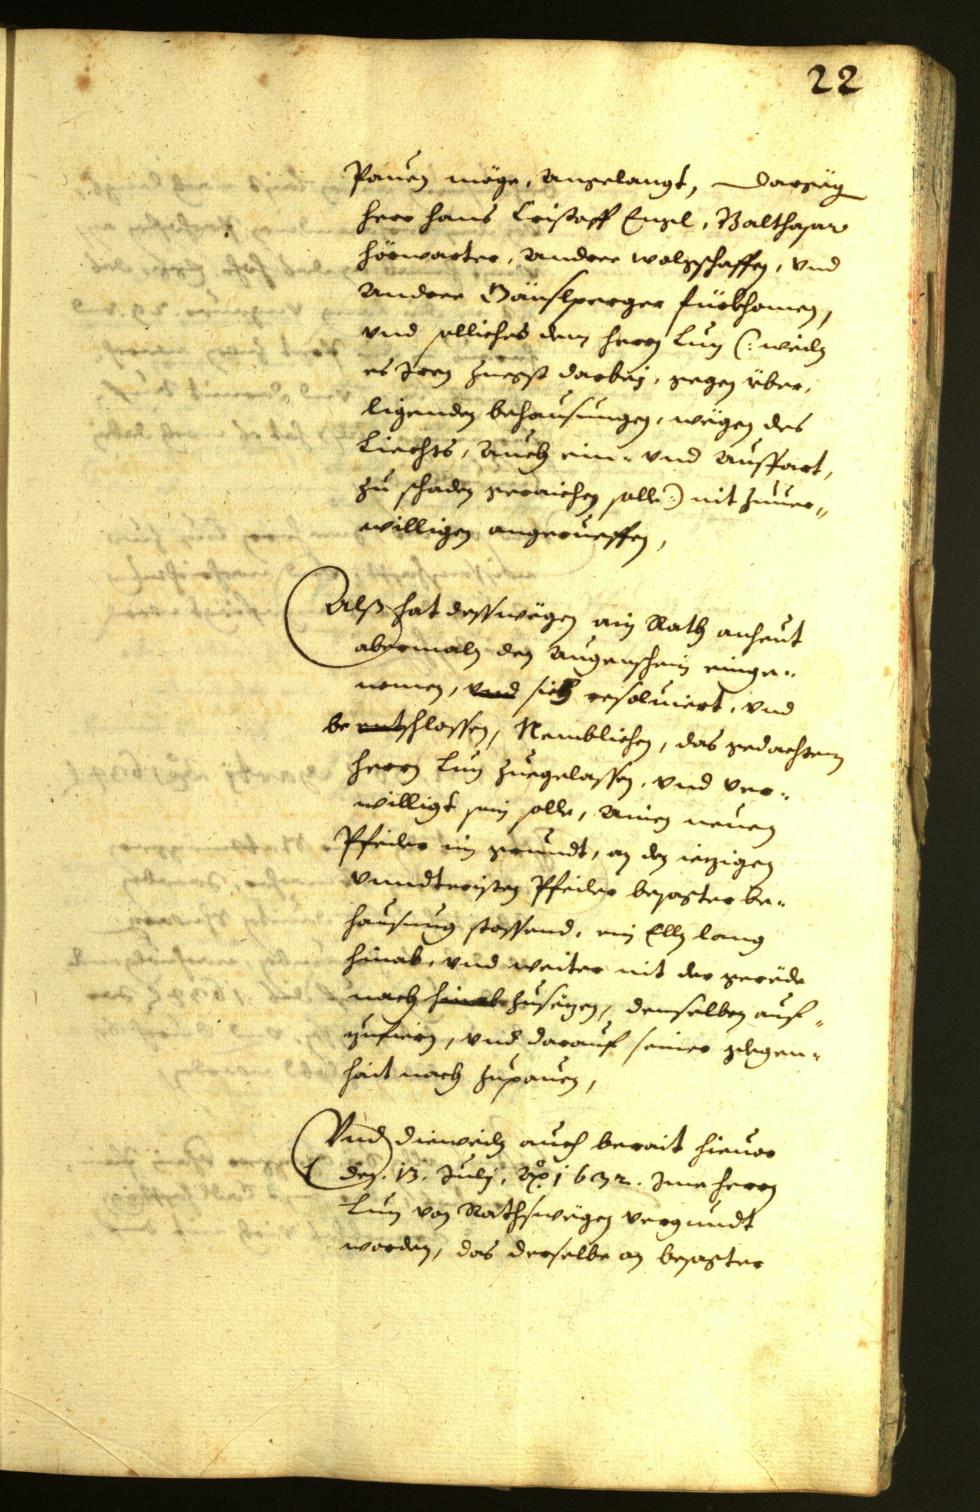 22
Pauen möge, angelangt, Dargeg
herr Hans Cristoff Engl, Balthasar
Hörwarter, Andree Walgschaffen, vnd
Andree Däuslperger fürkhomen,
vnd solliches dem herrn Lun (: weiln
es Iren zuegst darbei, gegen über,
ligenden behausungen, wegen des
Liechts, Auch ein- vnd Ausfart,
zu schaden geraichen solle:) nit zuuer-
willigen angeruessen,
Alß hat desswegen ain Rath anheut
abermaln den Augenschein einge-
nomen, vnd sich resoluiert, vnd
beentschlossen, Nemblichen, das gedachtem
herrn Lun zuegelassen, vnd ver-
willigt sein solle, Ainen neuen
Pfeiler im grundt, an den iezigen
vnndteristen Pfeiler besagter be-
hausung stossend, ein Elln lang
hinab, vnd weiter nit der gerede
nach hinab zusezen, denselben auf-
zufiern, vnd darauf seiner glegen-
hait nach zupauen,
Vnd dieweiln auch berait hieuor
den 13. Julij, Aõ 1632. Ime herrn
Lun von Rathswegen vergundt
worden, das derselbe an besagter